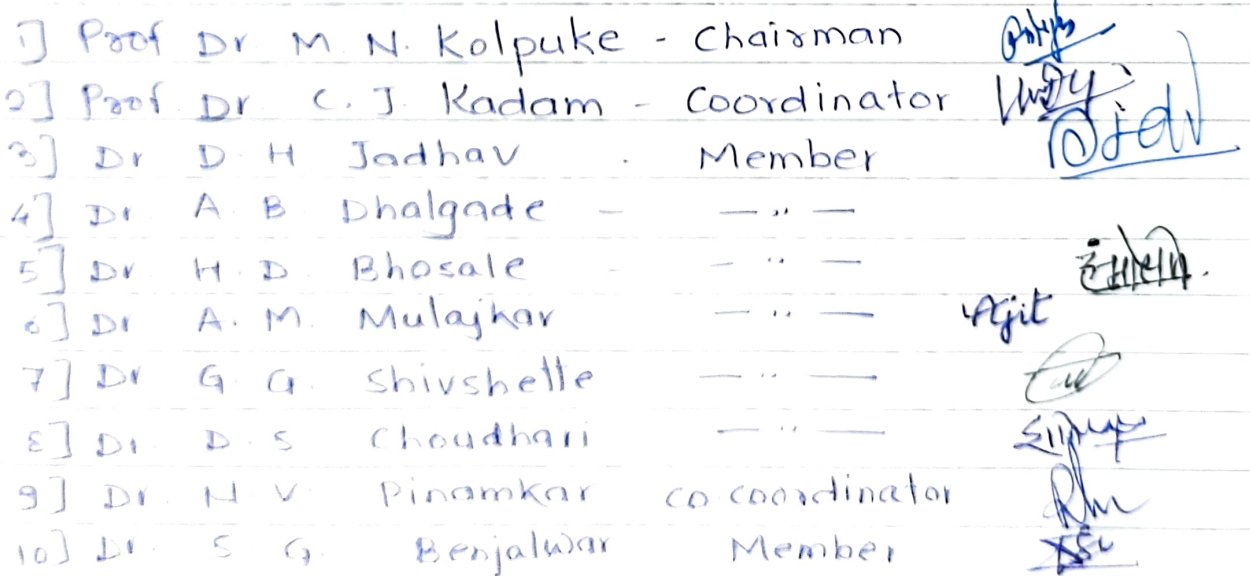 1] Prof Dr M. N. Kolpuke - Chairman
2] Prof. Dr C. J. Kadam - Coordinator
3] Dr D. H Jadhav - Member
4] Dr A. B Dhalgade - — " —
5] Dr. H. D. Bhosale - — " —
6] Dr A. M. Mulajkar — " — Ajit
7] Dr G. G. Shivshette — " —
8] Dr D. S Choudhari — " —
9] Dr. N V Pinamkar co coordinator
10] Dr. S G. Benjalwar Member